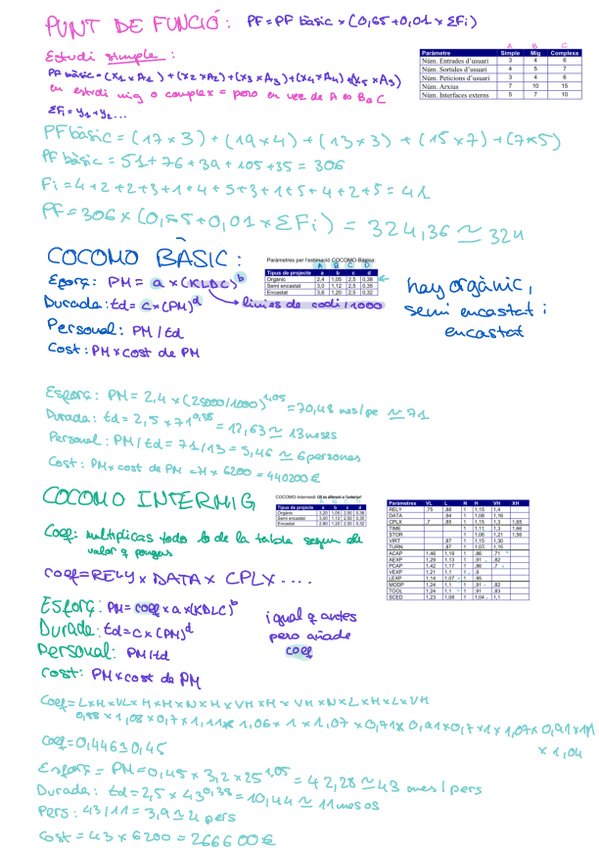 PUNT DE FUNCIÓ: PF = PF bàsic × (0,65 + 0,01 × ΣFi)
Estudi simple:
PF bàsic = (X1 × A1) + (X2 × A2) + (X3 × A3) + (X4 × A4) + (X5 × A5)
en estudi mig o complex = pero en vez de A es B o C
ΣFi = y1 + y2 ...
A B C
Paràmetre Simple Mig Complexa
Núm. Entrades d'usuari 3 4 6
Núm. Sortides d'usuari 4 5 7
Núm. Peticions d'usuari 3 4 6
Núm. Arxius 7 10 15
Núm. Interfaces externs 5 7 10
PF bàsic = (17 × 3) + (19 × 4) + (13 × 3) + (15 × 7) + (7 × 5)
PF bàsic = 51 + 76 + 39 + 105 + 35 = 306
Fi = 4 + 2 + 2 + 3 + 1 + 4 + 5 + 3 + 1 + 5 + 4 + 2 + 5 = 41
PF = 306 × (0,65 + 0,01 × ΣFi) = 324,36 ≃ 324
COCOMO BÀSIC:
Esforç: PM = a × (KLDC)^b
Durada: td = c × (PM)^d
línies de codi / 1000
Personal: PM / td
Cost: PM × cost de PM
Paràmetres per l'estimació COCOMO Bàsica:
A B C D
Tipus de projecte a b c d
Orgànic 2,4 1,05 2,5 0,38
Semi encastat 3,0 1,12 2,5 0,35
Encastat 3,6 1,20 2,5 0,32
hay orgànic,
semi encastat i
encastat
Esforç: PM = 2,4 × (25000/1000)^1,05 = 70,48 mes/pe ≃ 71
Durada: td = 2,5 × 71^0,38 = 12,63 ≃ 13 meses
Personal: PM / td = 71 / 13 = 5,46 ≃ 6 persones
Cost: PM × cost de PM = 71 × 6200 = 440200 €
COCOMO INTERMIG
COCOMO Intermedi
A B C D
Tipus de projecte a b c d
Orgànic 3,20 1,05 2,50 0,38
Semi encastat 3,00 1,12 2,50 0,35
Encastat 2,80 1,20 2,50 0,32
Coef: multiplicas todo lo de la tabla segun el
valor q pongas
coef = RELY × DATA × CPLX ....
Paràmetres VL L N H VH XH
RELY .75 .88 1 1,15 1,4
DATA .94 1 1,08 1,16
CPLX .7 .85 1 1,15 1,3 1,65
TIME 1 1,11 1,3 1,66
STOR 1 1,06 1,21 1,56
VIRT .87 1 1,15 1,30
TURN .87 1 1,07 1,15
ACAP 1,46 1,19 1 .86 .71
AEXP 1,29 1,13 1 .91 .82
PCAP 1,42 1,17 1 .86 .7
VEXP 1,21 1,1 1 .9
LEXP 1,14 1,07 1 .95
MODP 1,24 1,1 1 .91 .82
TOOL 1,24 1,1 1 .91 .83
SCED 1,23 1,08 1 1,04 1,1
Esforç: PM = coef × a × (KDLC)^b
Durada: td = c × (PM)^d
Personal: PM / td
Cost: PM × cost de PM
igual q antes
pero añade
coef
Coef = L × H × VL × H × H × N × H × VH × H × VH × N × L × H × L × VH
0,88 × 1,08 × 0,7 × 1,11 × 1,06 × 1 × 1,07 × 0,71 × 0,91 × 0,7 × 1 × 1,07 × 0,91 × 1,1
× 1,04
Coef = 0,446 ≃ 0,45
Esforç = PM = 0,45 × 3,2 × 25^1,05 = 42,28 ≃ 43 mes / pers
Durada: td = 2,5 × 43^0,38 = 10,44 ≃ 11 mesos
Pers: 43 / 11 = 3,9 ≃ 4 pers
Cost = 43 × 6200 = 266600 €